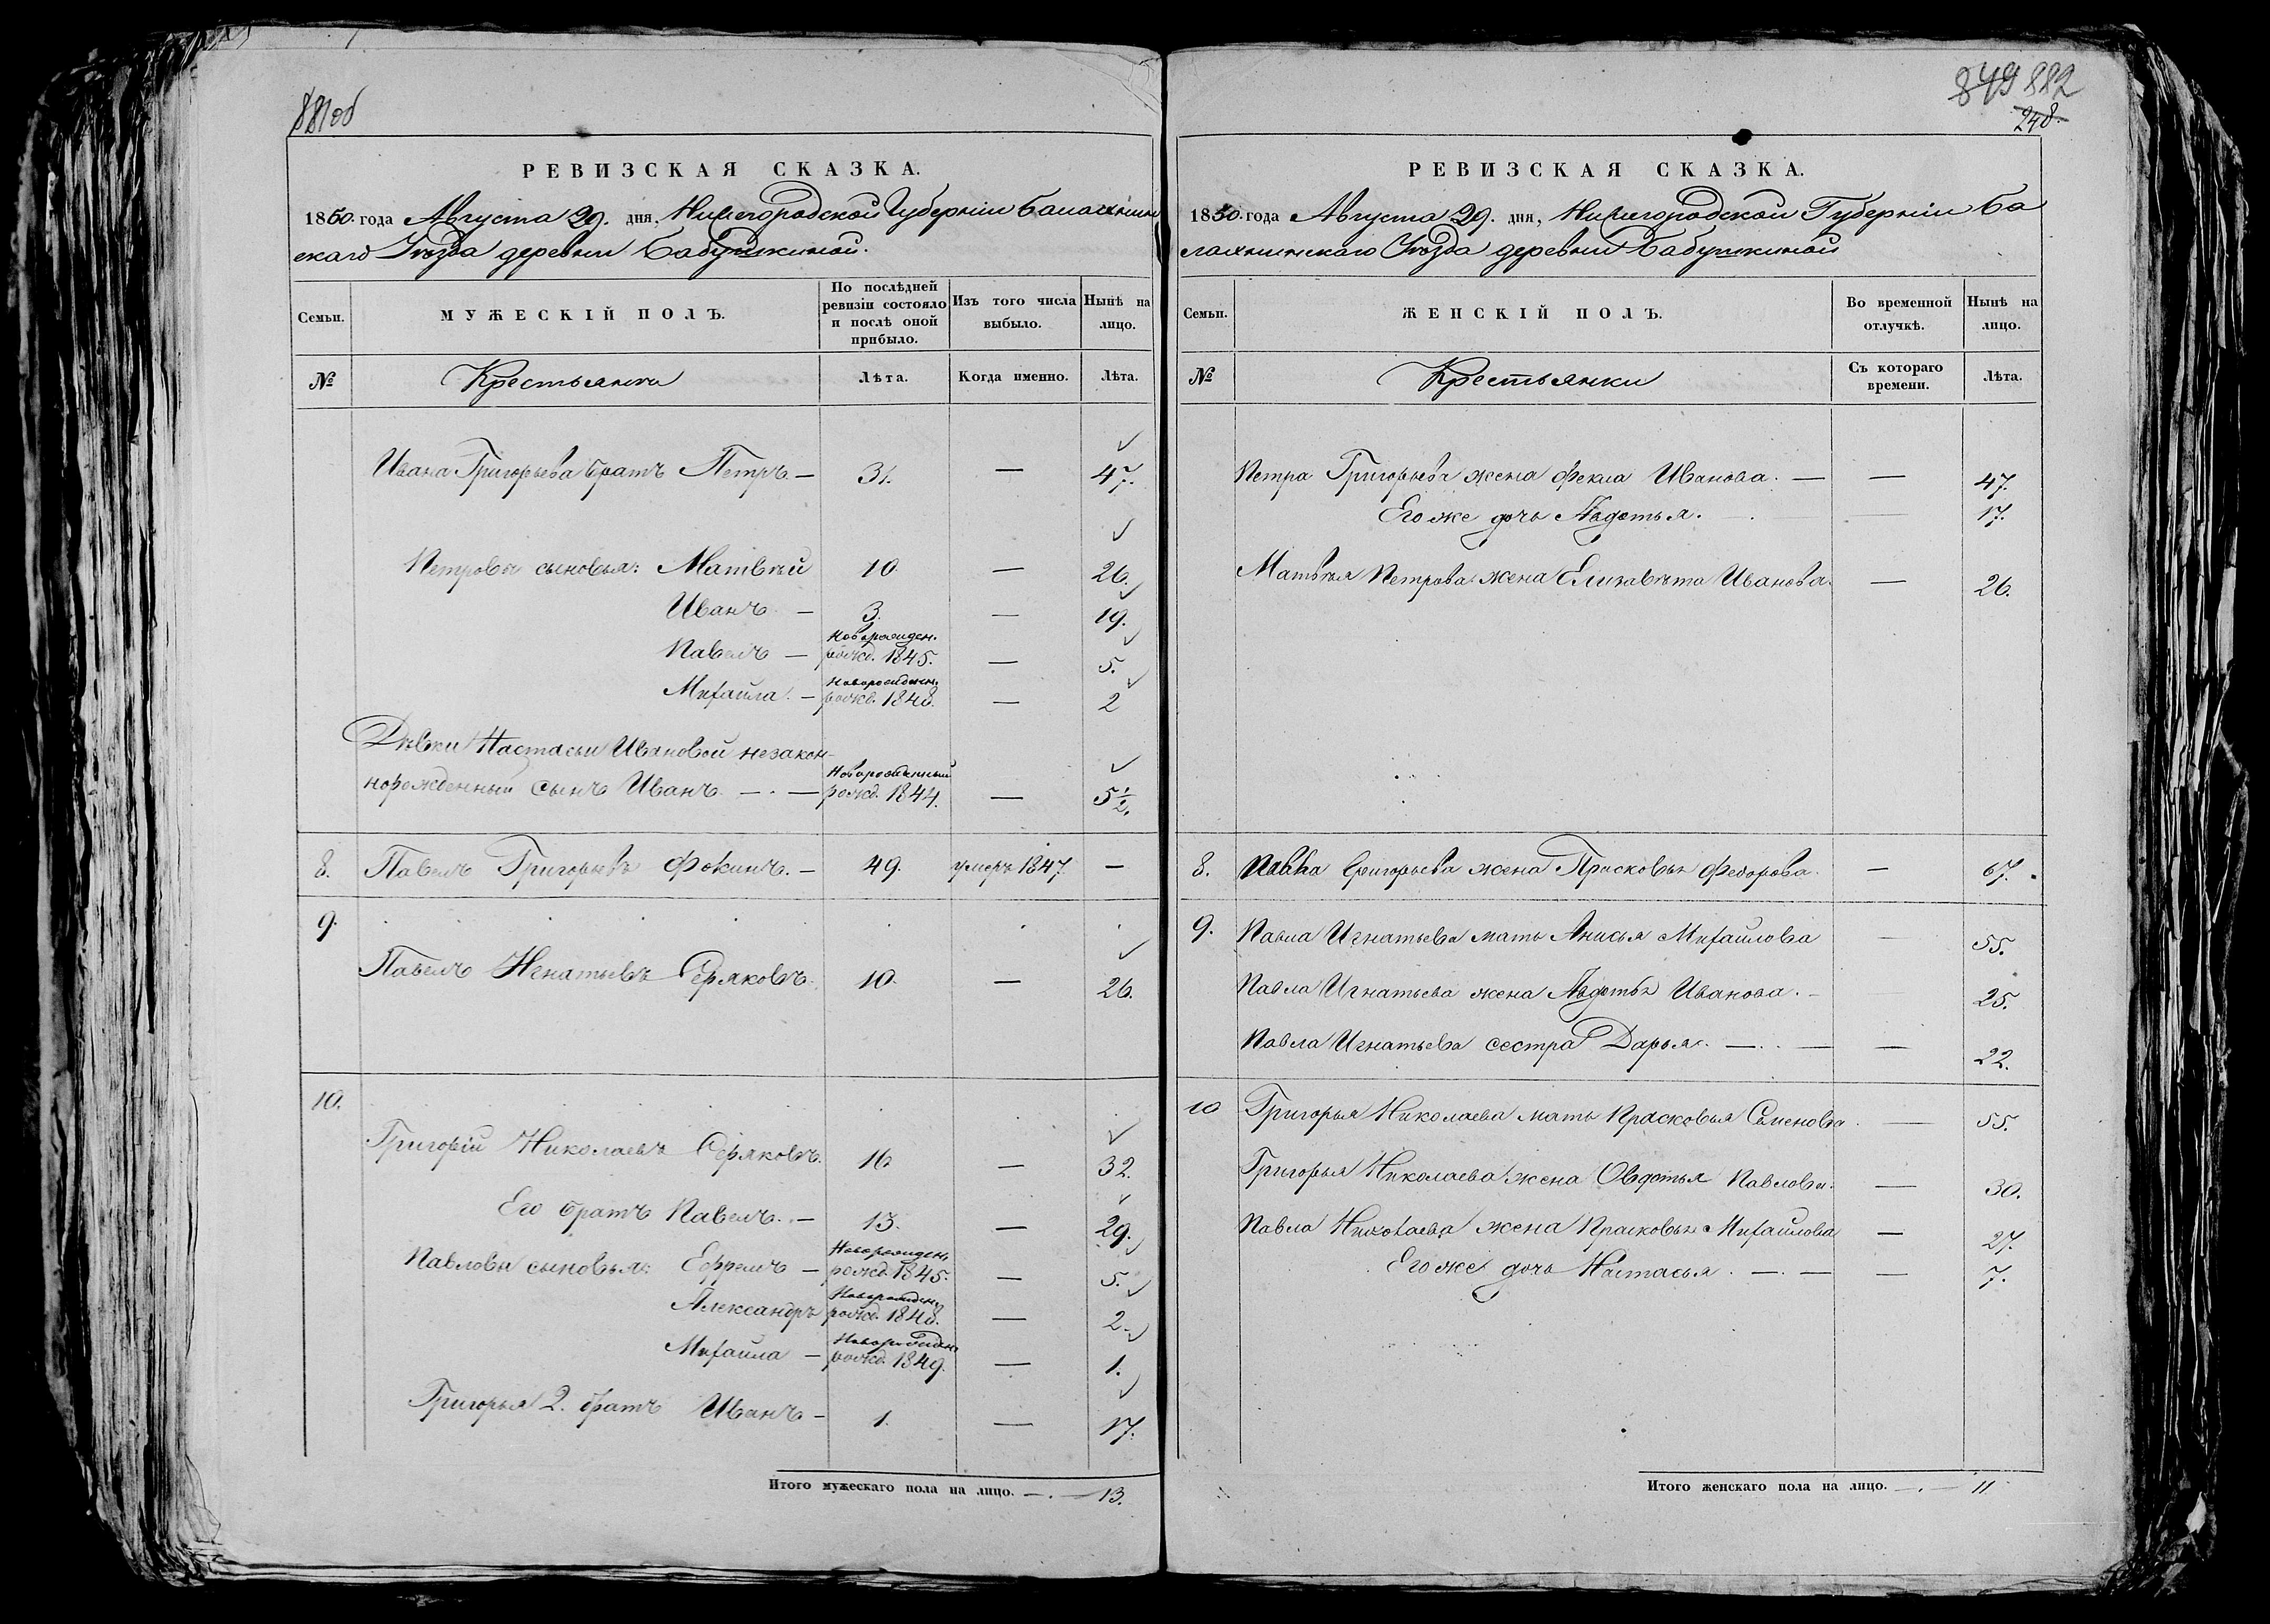 881 об
РЕВИЗСКАЯ СКАЗКА.
1850. года Августа 29. дня, Нижегородской Губерніи Балахнин
скаго Уѣзда деревни Бабушкиной.
Семьи.
МУЖЕСКІЙ ПОЛЪ.
По послѣдней ревизіи состояло и послѣ оной прибыло.
Изъ того числа выбыло.
Нынѣ на лицо.
№
Крестьяне
Лѣта.
Когда именно.
Лѣта.
Ивана Григорьева братъ Петръ — 31. — 47.
Петровы сыновья: Матвѣй 10. — 26.
Иванъ — 3. — 19.
Павелъ — Новорожден. рожд. 1845. — 5.
Михайла — Новорожден. рожд. 1848. — 2
Дѣвки Настасьи Ивановой незакон-
норожденный сынъ Иванъ — Новорожденный рожд. 1844. — 5 1/2.
8. Павелъ Григорьевъ Фокинъ. — 49. умеръ 1847. —
9.
Павелъ Игнатьевъ Серяковъ. 10. — 26.
10.
Григорій Николаевъ Серяковъ. 16 — 32.
Его братъ Павелъ. — 13. — 29.
Павловы сыновья: Ефремъ — Новорожден. рожд. 1845. — 5.
Александръ Новорожден. рожд. 1848. — 2.
Михайла — Новорожден. рожд. 1849. — 1.
Григорья 2. братъ Иванъ — 1. — 17.
Итого мужескаго пола на лицо. — 13.
849 882
248.
РЕВИЗСКАЯ СКАЗКА.
1850. года Августа 29. дня, Нижегородской Губерніи Ба
лахнинскаго Уѣзда деревни Бабушкиной
Семьи.
ЖЕНСКІЙ ПОЛЪ.
Во временной отлучкѣ.
Нынѣ на лицо.
№
Крестьянки
Съ котораго времени.
Лѣта.
Петра Григорьева жена Фекла Иванова. — — 47.
Его же дочь Авдотья. — 17.
Матвѣя Петрова жена Елизавѣта Иванова. — 26.
8. Павла Григорьева жена Прасковья Федорова. — 67.
9. Павла Игнатьева мать Анисья Михайлова — 55.
Павла Игнатьева жена Авдотья Иванова. — 25.
Павла Игнатьева сестра Дарья. — — — 22.
10 Григорья Николаева мать Прасковья Семенова — 55.
Григорья Николаева жена Овдотья Павлова. — 30.
Павла Николаева жена Прасковья Михайлова — 27.
Его же дочь Настасья. — — — 7.
Итого женскаго пола на лицо. — 11